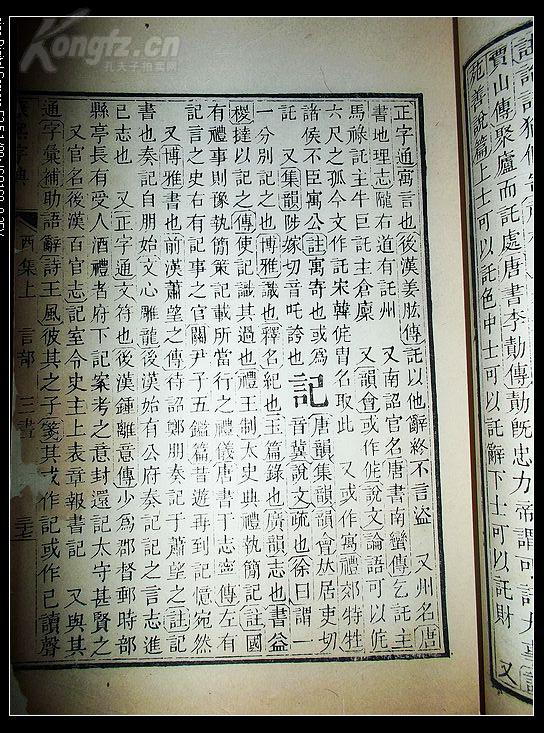 賈山傳聚廬而託處唐書李勣傳勣旣忠力帝謂可託大事
苑善說篇上士可以託色中士可以託辭下士可以託財 又
正字通寓言也後漢姜肱傳託以他辭終不言盜 又州名唐
書地理志隴右道有託州 又南詔官名唐書南蠻傳乞託主
馬祿託主牛巨託主倉廩 又韻會或作侂說文論語可以侂
六尺之孤今文作託宋韓侂冑名取此 又或作寓禮郊特牲
諸侯不臣寓公註寓寄也或爲
託 又集韻陟嫁切音吒誇也
記
唐韻集韻韻會𠀤居吏切
音冀說文疏也徐曰謂一
一分別記之也博雅識也釋名紀也玉篇錄也廣韻志也書益
稷撻以記之傳使記識其過也禮王制太史典禮執簡記註國
有禮事則豫執簡策記載所當行之禮儀唐書于志寧傳左有
記言之史右有記事之官關尹子五鑑篇昔遊再到記憶宛然
又博雅書也前漢蕭望之傳待詔鄭朋奏記于蕭望之註記
書也奏記自朋始文心雕龍後漢始有公府奏記記之言志進
已志也 又正字通文符也後漢鍾離意傳少爲郡督郵時部
縣亭長有受人酒禮者府下記案考之意封還記太守甚賢之
又官名後漢百官志記室令史主上表章報書記 又與其
通字彙補助語辭詩王風彼其之子箋其或作記或作已讀聲
康熙字典 酉集上 言部 三畫
Kongfz.cn
孔夫子拍卖网